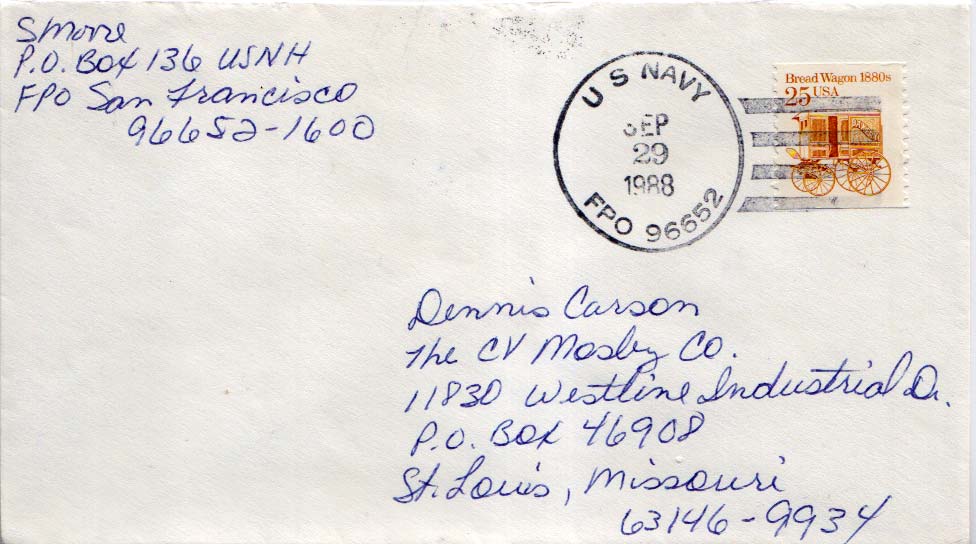 S Moore
P.O. Box 136 USNH
FPO San Francisco
96652-1600
U S NAVY
SEP
29
1988
FPO 96652
Bread Wagon 1880s
25 USA
Dennis Carson
The CV Mosby Co.
11830 Westline Industrial Dr.
P.O. Box 46908
St. Louis, Missouri
63146-9934